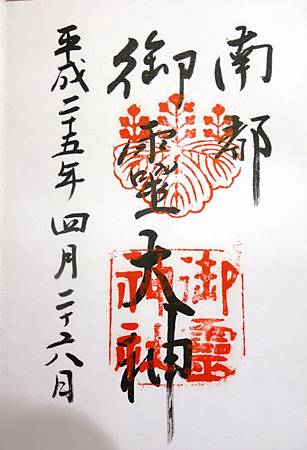 南都
御霊大神
平成二十五年四月二十六日
御霊
神社